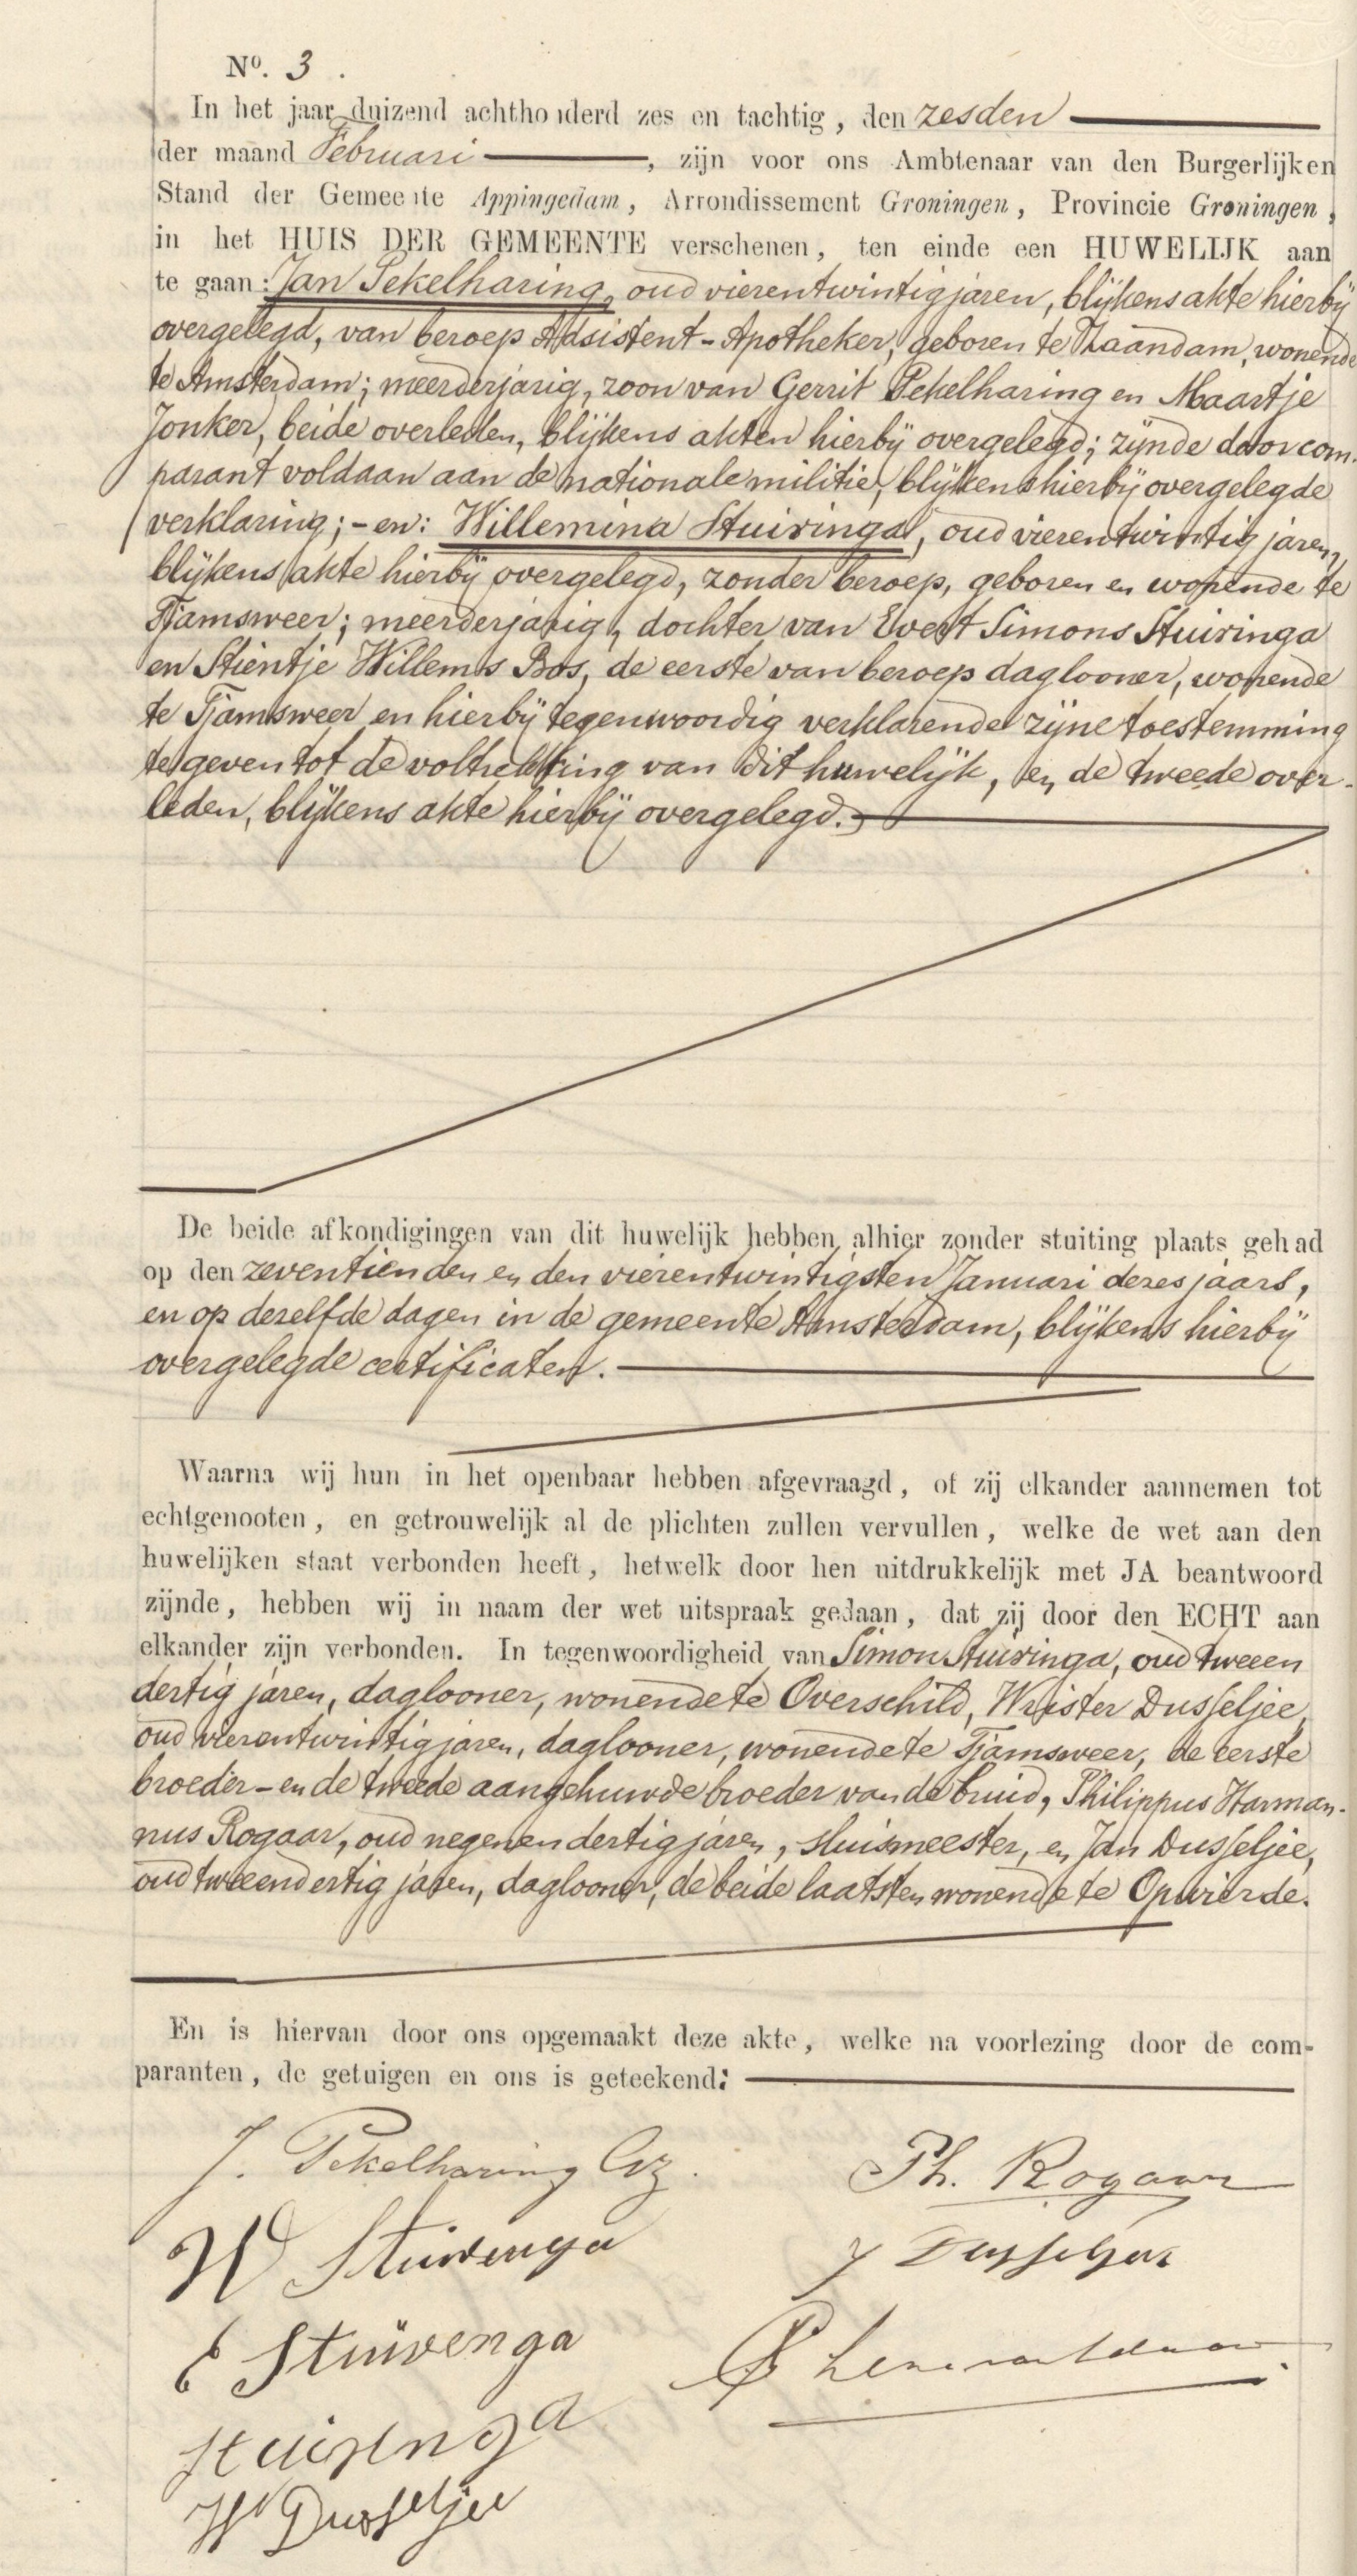 Nº. 3.
In het jaar duizend achthonderd zes en tachtig, den zesden
der maand Februari, zijn voor ons Ambtenaar van den Burgerlijken
Stand der Gemeente Appingedam, Arrondissement Groningen, Provincie Groningen,
in het HUIS DER GEMEENTE verschenen, ten einde een HUWELIJK aan
te gaan: Jan Pekelharing, oud vierentwintig jaren, blijkens akte hierbij
overgelegd, van beroep Adsistent-Apotheker, geboren te Zaandam, wonende
te Amsterdam; meerderjarig, zoon van Gerrit Pekelharing en Maartje
Jonker, beide overleden, blijkens akten hierbij overgelegd; zijnde door com-
parant voldaan aan de nationale militie, blijkens hierbij overgelegde
verklaring; - en: Willemina Stuivinga, oud vierentwintig jaren,
blijkens akte hierbij overgelegd, zonder beroep, geboren en wonende te
Tjamsweer; meerderjarig, dochter van Evert Simons Stuivinga
en Stientje Willems Bos, de eerste van beroep daglooner, wonende
te Tjamsweer en hierbij tegenwoordig verklarende zijne toestemming
te geven tot de voltrekking van dit huwelijk, en de tweede over-
leden, blijkens akte hierbij overgelegd.
De beide afkondigingen van dit huwelijk hebben alhier zonder stuiting plaats gehad
op den zeventienden en den vierentwintigsten Januari dezes jaars,
en op dezelfde dagen in de gemeente Amsterdam, blijkens hierbij
overgelegde certificaten.
Waarna wij hun in het openbaar hebben afgevraagd, of zij elkander aannemen tot
echtgenooten, en getrouwelijk al de plichten zullen vervullen, welke de wet aan den
huwelijken staat verbonden heeft, hetwelk door hen uitdrukkelijk met JA beantwoord
zijnde, hebben wij in naam der wet uitspraak gedaan, dat zij door den ECHT aan
elkander zijn verbonden. In tegenwoordigheid van Simon Stuivinga, oud tweeen
dertig jaren, daglooner, wonende te Overschild, Wrister Dusseljee,
oud vierentwintig jaren, daglooner, wonende te Tjamsweer, de eerste
broeder - en de tweede aangehuwde broeder van de bruid, Philippus Harman-
nus Rogaar, oud negenendertig jaren, sluismeester, en Jan Dusseljee,
oud tweeendertig jaren, daglooner, de beide laatsten wonende te Opwierde.
En is hiervan door ons opgemaakt deze akte, welke na voorlezing door de com-
paranten, de getuigen en ons is geteekend:
J. Pekelharing Gz.
Ph. Rogaar
W Stuivenga
J Dusseljee
E Stuivenga
Stuivinga
W Dusseljee